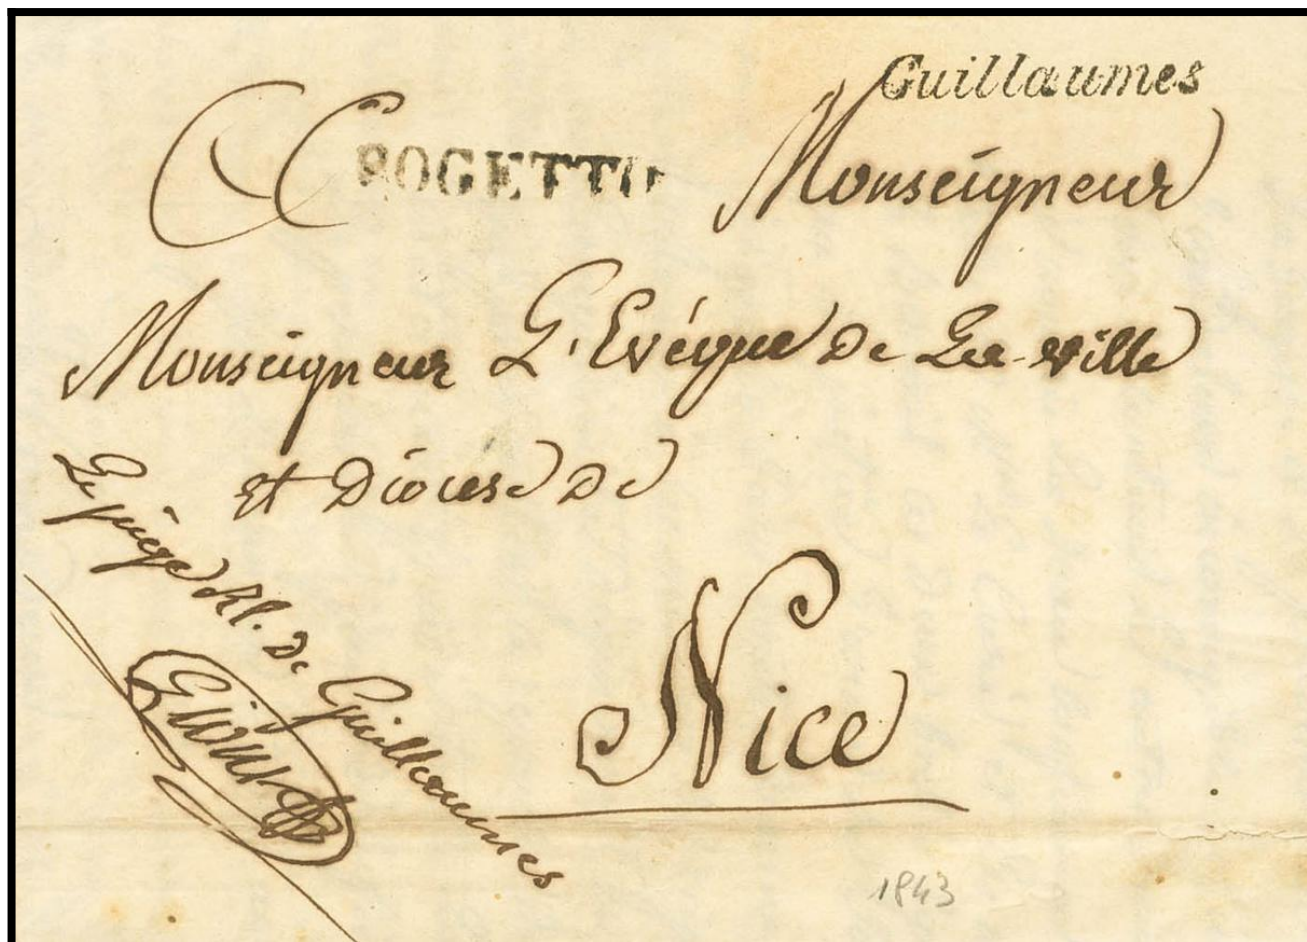 Guillaumes
SOGETTO
Monseigneur
Monseigneur L'Evéque de La ville
et Diocese de
Nice
Le juge Rl. de Guillaumes
1843